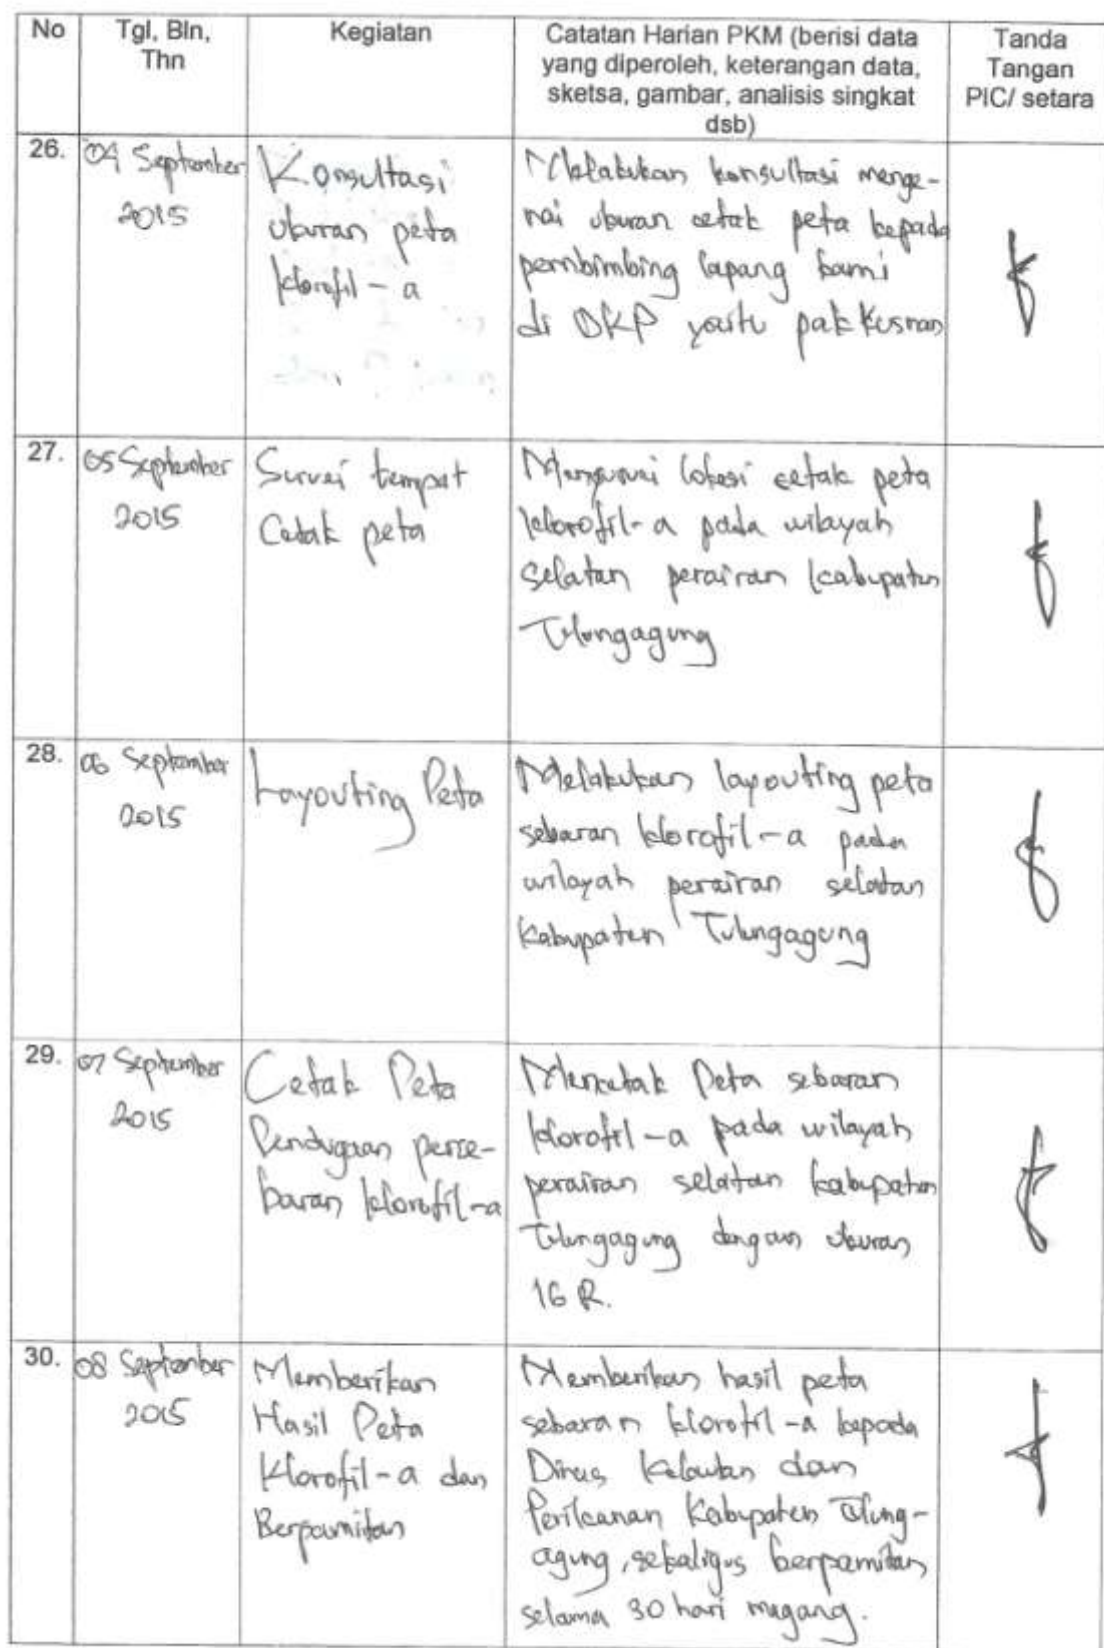 No
Tgl, Bln,
Thn
Kegiatan
Catatan Harian PKM (berisi data
yang diperoleh, keterangan data,
sketsa, gambar, analisis singkat
dsb)
Tanda
Tangan
PIC/ setara
26.
04 September
2015
Konsultasi
ukuran peta
klorofil - a
Melakukan konsultasi menge-
nai ukuran cetak peta kepada
pembimbing lapang kami
di DKP yaitu pak Kusnan
27.
05 September
2015
Survei tempat
Cetak peta
Mensurvei lokasi cetak peta
klorofil-a pada wilayah
selatan perairan kabupaten
Tulungagung
28.
06 September
2015
Layouting Peta
Melakukan layouting peta
sebaran klorofil-a pada
wilayah perairan selatan
Kabupaten Tulungagung
29.
07 September
2015
Cetak Peta
Pendugaan perse-
baran klorofil-a
Mencetak Peta sebaran
klorofil-a pada wilayah
perairan selatan kabupaten
Tulungagung dengan ukuran
16 R.
30.
08 September
2015
Memberikan
Hasil Peta
Klorofil-a dan
Berpamitan
Memberikan hasil peta
sebaran klorofil-a kepada
Dinas Kelautan dan
Perikanan Kabupaten Tulung-
agung, sekaligus berpamitan
selama 30 hari magang.